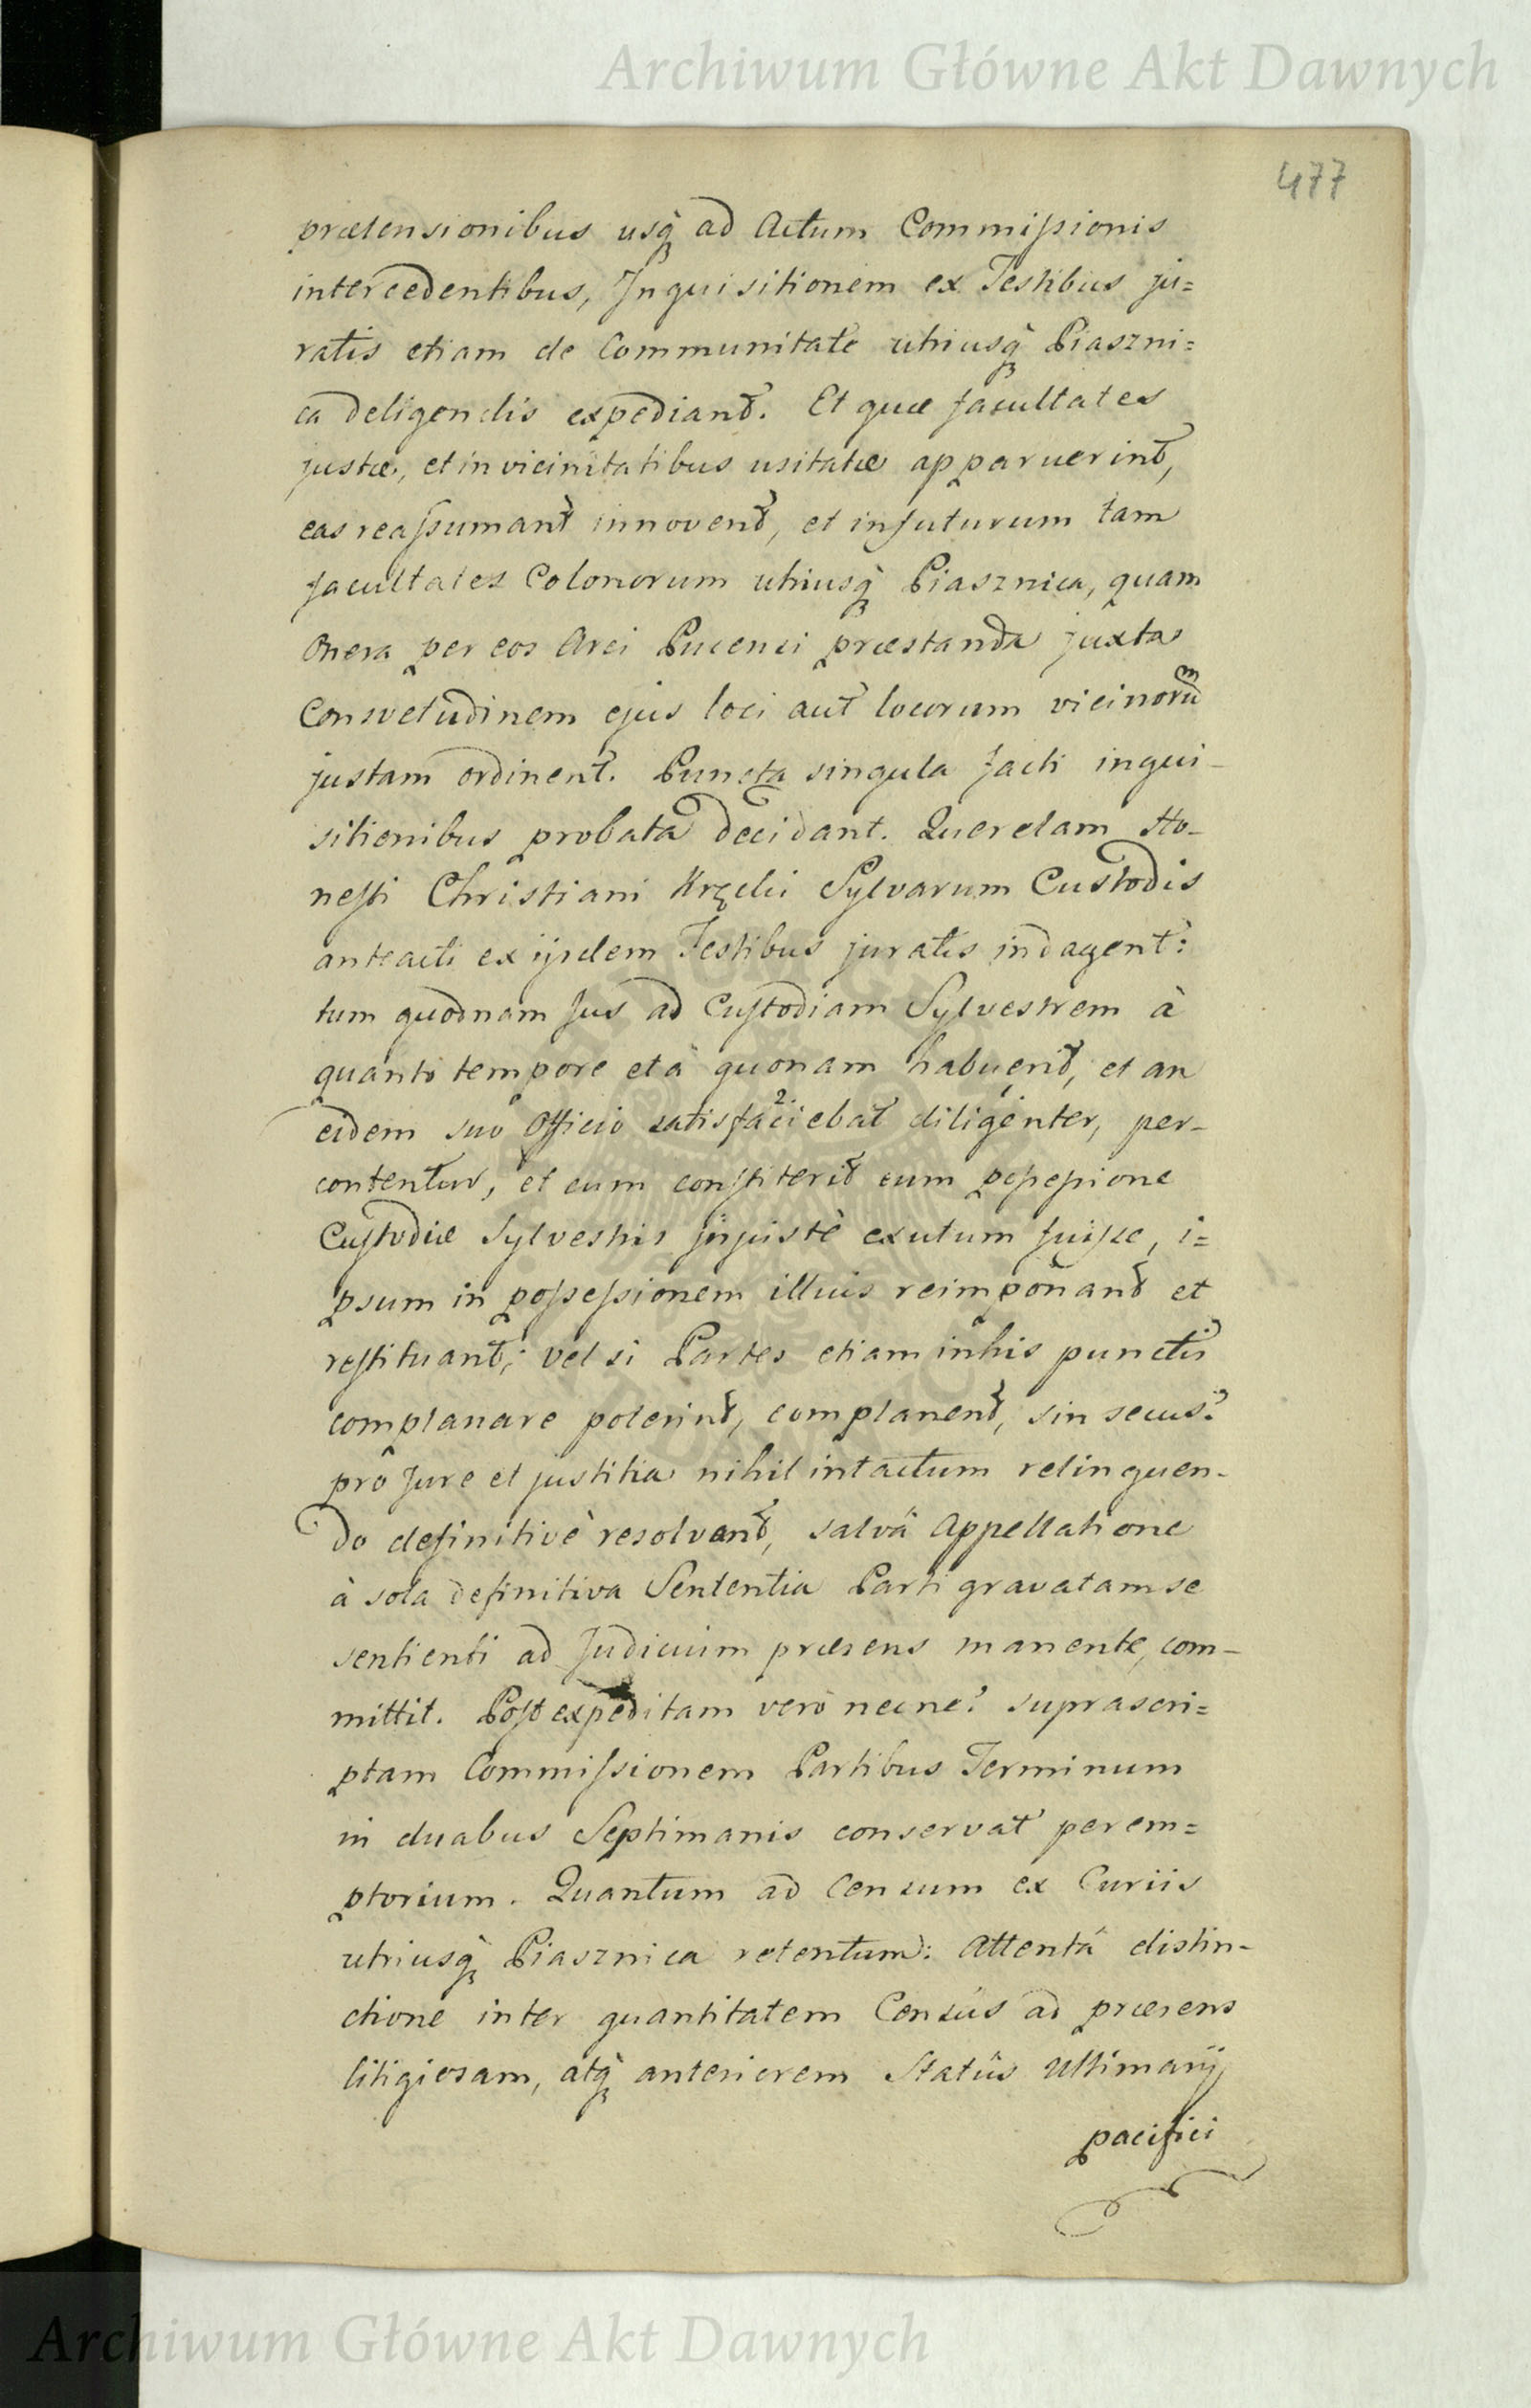 Archiwum Główne Akt Dawnych
477
prætensionibus usq̀ ad Actum Commissionis
intercedentibus, Inquisitionem ex Testibus ju=
ratis etiam de Communitate utriusq̀ Piaszni=
ca deligendis expediant. Et quæ facultates
justæ, et in vicinitatibus usitatæ apparuerint,
eas reassumant innovent, et in futurum tam
facultates Colonorum utriusq̀ Piasznica, quam
Onera per eos Arci Pucensi præstanda juxta
Consvetudinem ejus loci aut locorum vicinorum
justam ordinent. Puncta singula facti inqui-
sitionibus probata decidant. Querelam Ho-
nesti Christiani Sylvarum Custodis
anteacti ex ijsdem Testibus juratis indagent:
tum quodnam Jus ad Custodiam Sylvestrem à
quanto tempore et à quonam habuerit, et an
eidem suo Officio satisfaciebat diligenter, per-
contentur, et cum constiterit eum possessione
Custodiæ Sylvestris injustè exutum fuisse, i=
psum in possessionem illius reimponant et
restituant; vel si Partes etiam in his punctis
complanare poterint, complanent, sin secus?
pro Jure et justitia nihil intactum relinquen-
do definitivè resolvant, salvâ Appellatione
à sola definitiva Sententia Parti gravatam se
sentienti ad Judicium præsens manente, com-
mittit. Post expeditam verò necne? suprascri=
ptam Commissionem Partibus Terminum
in duabus Septimanis conservat perem=
ptorium. Quantum ad Censum ex Curiis
utriusq̀ Piasznica retentum: Attentâ distin-
ctione inter quantitatem Censûs ad præsens
litigiosam, atq̀ anteriorem Statûs Ultimarij
pacifici
Archiwum Główne Akt Dawnych